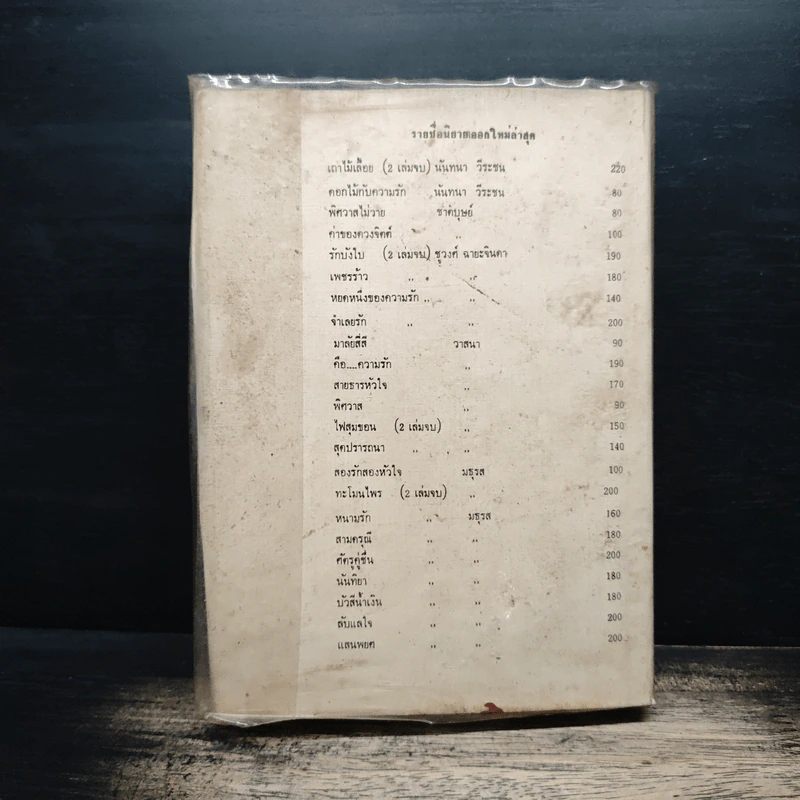 รายชื่อนิยายออกใหม่ล่าสุด
เถาไม้เลื้อย (2 เล่มจบ) นันทนา วีระชน 220
ดอกไม้กับความรัก นันทนา วีระชน 80
พิศวาสไม่วาย ชาติบุษย์ 80
ค่าของดวงจิตต์ ,, 100
รักบังใบ (2 เล่มจบ) ชูวงศ์ ฉายะจินดา 190
เพชรร้าว ,, ,, 180
หยดหนึ่งของความรัก ,, ,, 140
จำเลยรัก ,, ,, 200
มาลัยสี่สี วาสนา 90
คือ....ความรัก ,, 190
สายธารหัวใจ ,, 170
พิศวาส ,, 90
ไฟสุมขอน (2 เล่มจบ) ,, 150
สุดปรารถนา ,, ,, 140
สองรักสองหัวใจ มธุรส 100
ทะโมนไพร (2 เล่มจบ) ,, 200
หนามรัก ,, มธุรส 160
สามดรุณี ,, ,, 180
ศัตรูคู่ชื่น ,, ,, 200
นันทิยา ,, ,, 180
บัวสีน้ำเงิน ,, ,, 180
ลับแลใจ ,, ,, 200
แสนพยศ ,, ,, 200